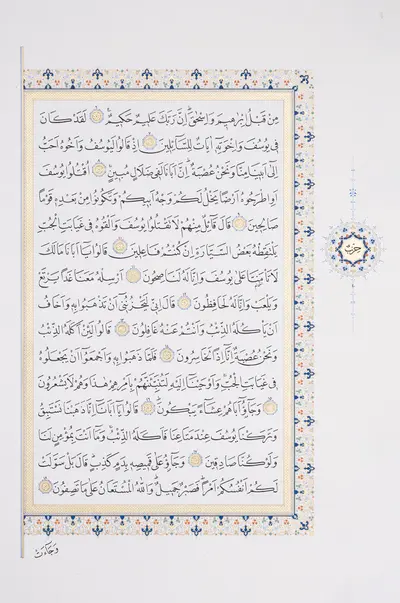 مِنْ قَبْلُ اِبْرٰهِيمَ وَاِسْحٰقَۜ اِنَّ رَبَّكَ عَلِيمٌ حَكِيمٌ۟ لَقَدْ كَانَ
فِي يُوسُفَ وَاِخْوَتِهِٓ اٰيَاتٌ لِلسَّٓائِلِينَ اِذْ قَالُوا لَيُوسُفُ وَاَخُوهُ اَحَبُّ
اِلٰٓى اَبِينَا مِنَّا وَنَحْنُ عُصْبَةٌۜ اِنَّ اَبَانَا لَفِي ضَلَالٍ مُبِينٍۚ اُقْتُلُوا يُوسُفَ
اَوِ اطْرَحُوهُ اَرْضًا يَخْلُ لَكُمْ وَجْهُ اَبِيكُمْ وَتَكُونُوا مِنْ بَعْدِهِ قَوْمًا
صَالِحِينَ قَالَ قَٓائِلٌ مِنْهُمْ لَا تَقْتُلُوا يُوسُفَ وَاَلْقُوهُ فِي غَيَابَتِ الْجُبِّ
يَلْتَقِطْهُ بَعْضُ السَّيَّارَةِ اِنْ كُنْتُمْ فَاعِلِينَ قَالُوا يَٓا اَبَانَا مَا لَكَ
لَا تَأْمَنَّا عَلٰى يُوسُفَ وَاِنَّا لَهُ لَنَاصِحُونَ اَرْسِلْهُ مَعَنَا غَدًا يَرْتَعْ
وَيَلْعَبْ وَاِنَّا لَهُ لَحَافِظُونَ قَالَ اِنِّي لَيَحْزُنُنِٓي اَنْ تَذْهَبُوا بِهِ وَاَخَافُ
اَنْ يَأْكُلَهُ الذِّئْبُ وَاَنْتُمْ عَنْهُ غَافِلُونَ قَالُوا لَئِنْ اَكَلَهُ الذِّئْبُ
وَنَحْنُ عُصْبَةٌ اِنَّٓا اِذًا لَخَاسِرُونَ فَلَمَّا ذَهَبُوا بِهِ وَاَجْمَعُٓوا اَنْ يَجْعَلُوهُ
فِي غَيَابَتِ الْجُبِّۚ وَاَوْحَيْنَٓا اِلَيْهِ لَتُنَبِّئَنَّهُمْ بِاَمْرِهِمْ هٰذَا وَهُمْ لَا يَشْعُرُونَ
وَجَٓاؤُٓ اَبَاهُمْ عِشَٓاءً يَبْكُونَۜ قَالُوا يَٓا اَبَانَٓا اِنَّا ذَهَبْنَا نَسْتَبِقُ
وَتَرَكْنَا يُوسُفَ عِنْدَ مَتَاعِنَا فَاَكَلَهُ الذِّئْبُۚ وَمَٓا اَنْتَ بِمُؤْمِنٍ لَنَا
وَلَوْ كُنَّا صَادِقِينَ وَجَٓاؤُ عَلٰى قَمِيصِهِ بِدَمٍ كَذِبٍۜ قَالَ بَلْ سَوَّلَتْ
لَكُمْ اَنْفُسُكُمْ اَمْرًاۜ فَصَبْرٌ جَمِيلٌۜ وَاللّٰهُ الْمُسْتَعَانُ عَلٰى مَا تَصِفُونَ
حزب
وَجَٓاءَتْ